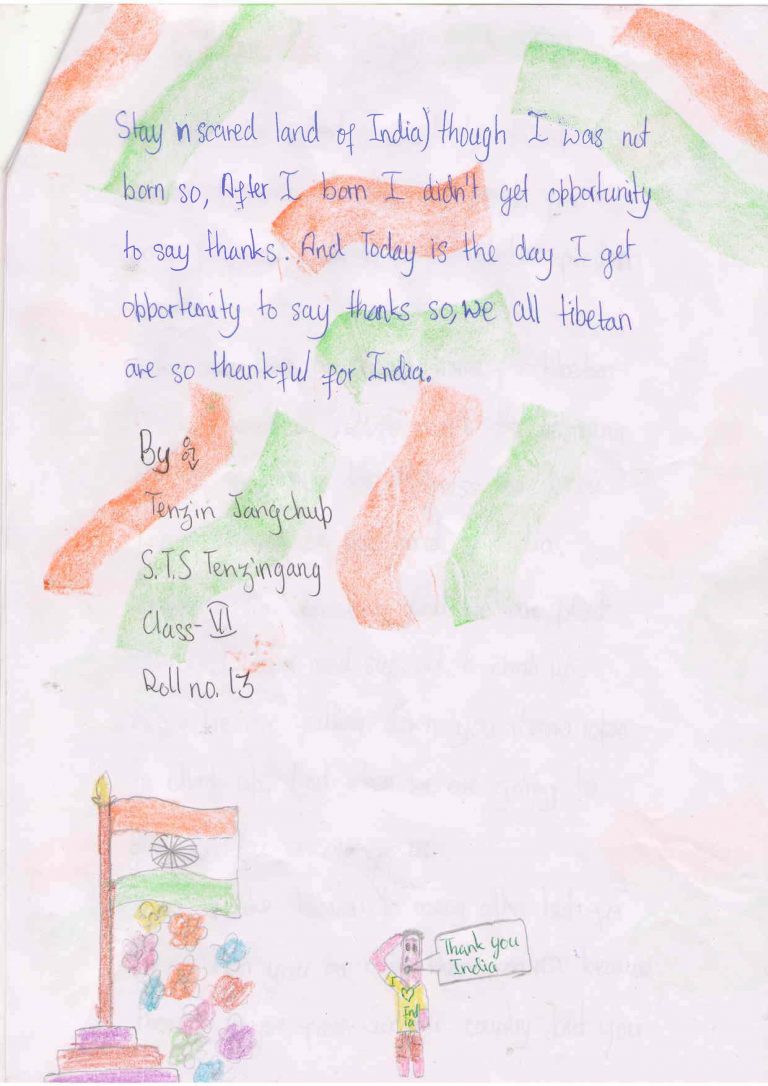 Stay n scared land of India) though I was not
born so, After I born I didn't get opportunity
to say thanks. And Today is the day I get
opportunity to say thanks so, we all tibetan
are so thankful for India.
By
Tenzin Jangchub
S.T.S Tenzingang
Class- VI
Roll no. 13
Thank you
India
I
Ind
ia